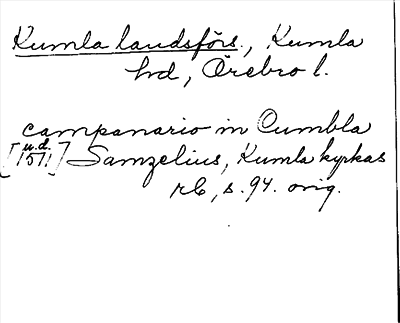 Kumla landsförs., Kumla
hd, Örebro l.
campanario in Cumbla
[u.d. 1571] Samzelius, Kumla kyrkas
rb, s. 94. orig.